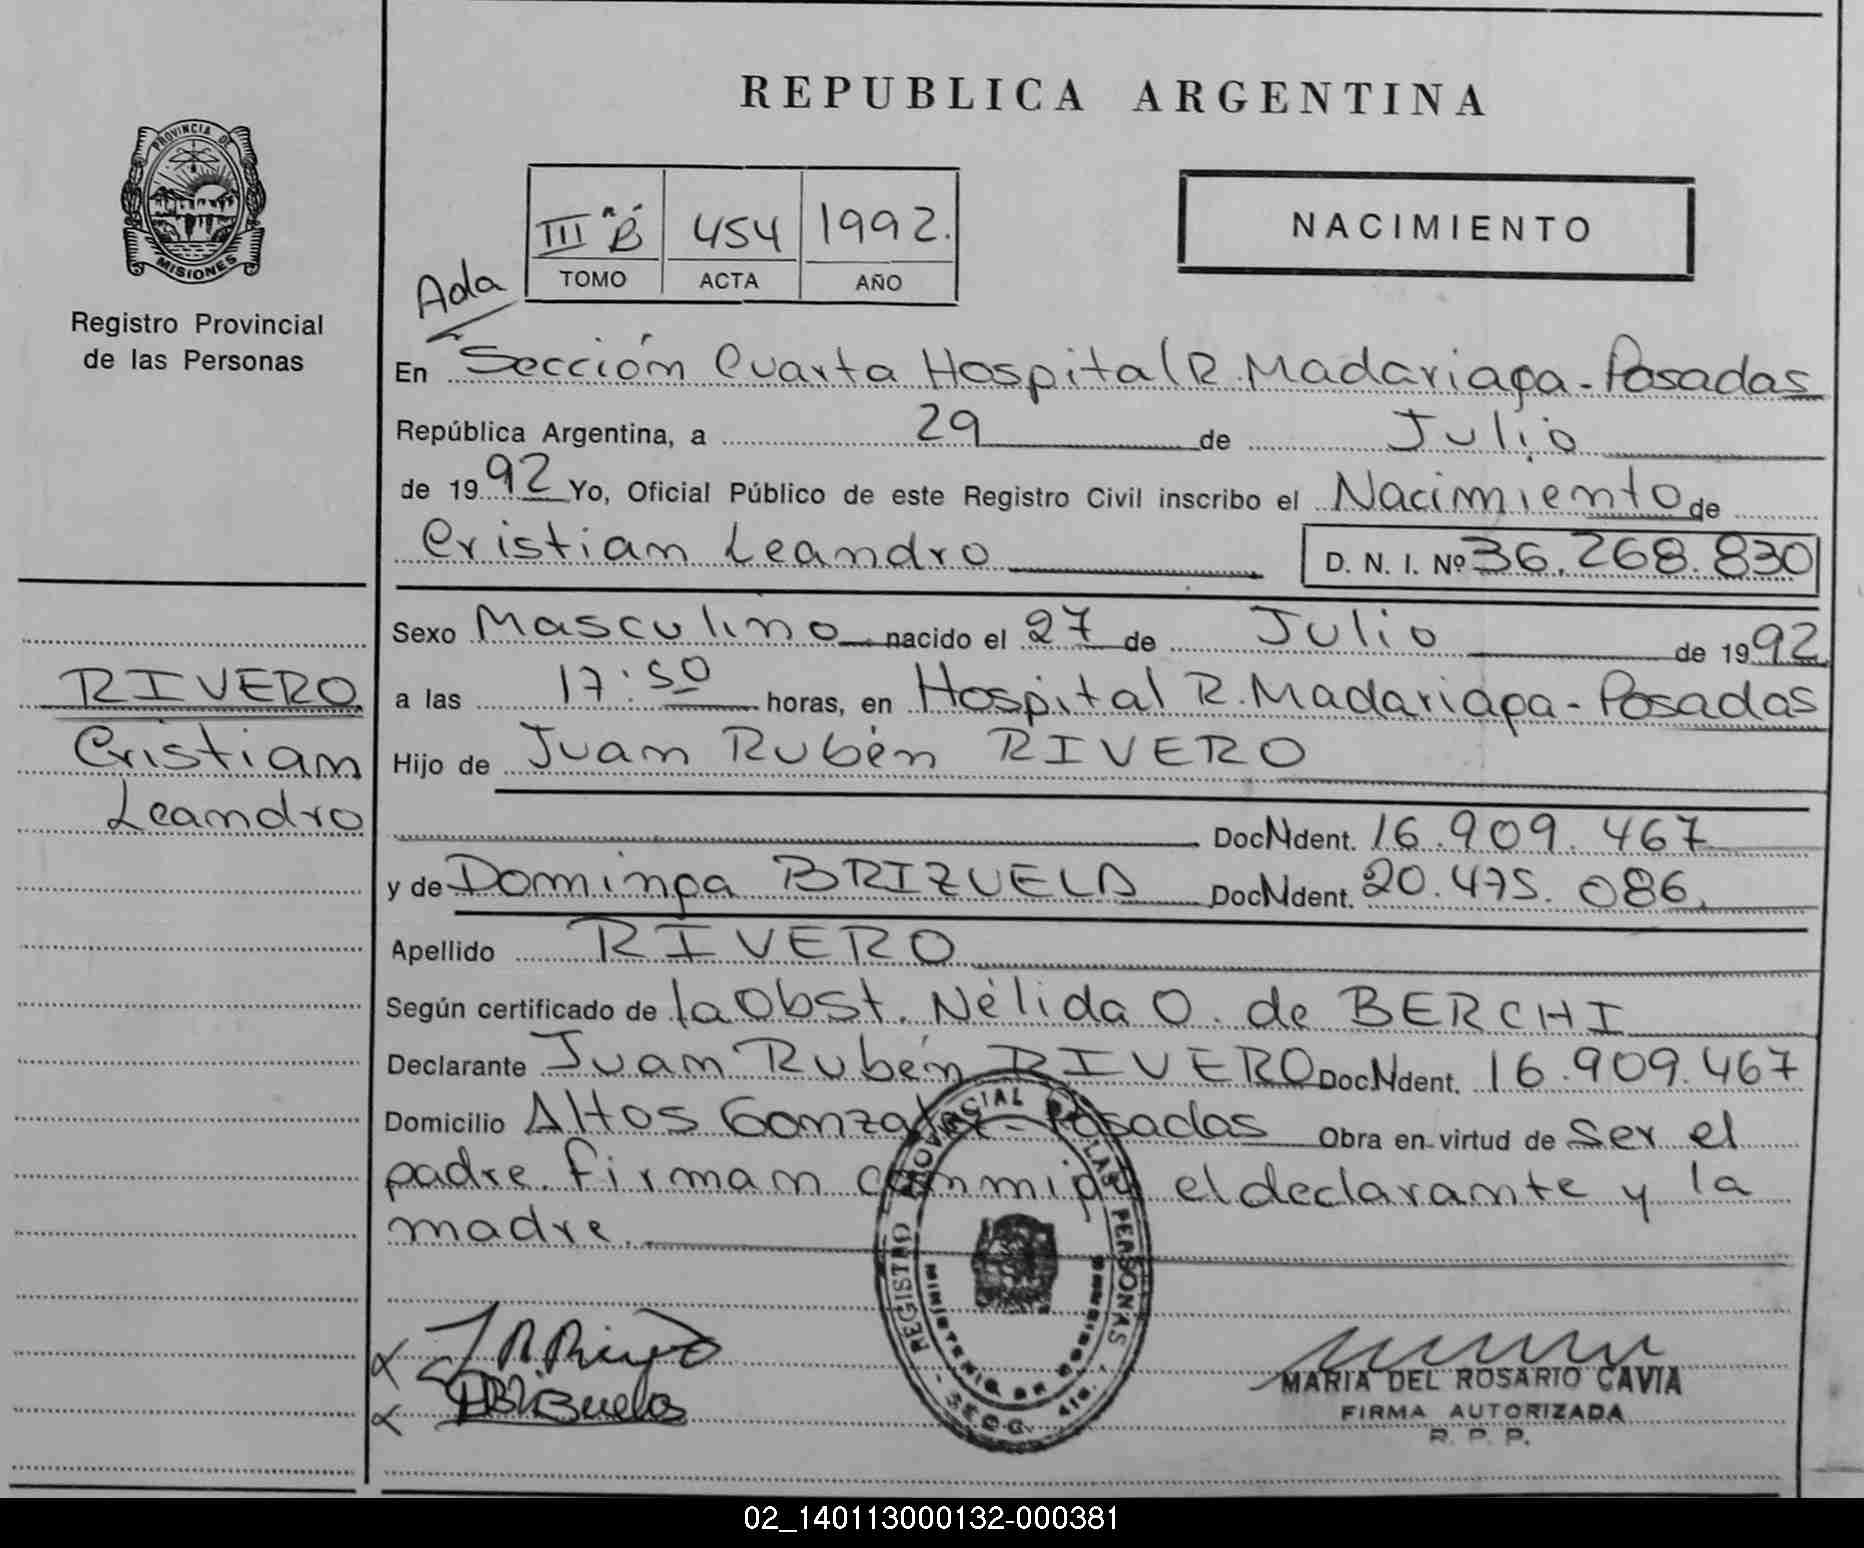 REPUBLICA ARGENTINA
PROVINCIA DE
MISIONES
Registro Provincial
de las Personas
III "B" 454 1992.
TOMO ACTA AÑO
NACIMIENTO
Ada
En Sección Cuarta Hospital R. Madariaga - Posadas
República Argentina, a 29 de Julio
de 1992 Yo, Oficial Público de este Registro Civil inscribo el Nacimiento de
Cristian Leandro D. N. I. Nº 36.268.830
Sexo Masculino nacido el 27 de Julio de 1992
a las 17:50 horas, en Hospital R. Madariaga - Posadas
Hijo de Juan Rubén RIVERO
Doc N Ident. 16.909.467
y de Dominga BRIZUELA Doc N Ident. 20.475.086
Apellido RIVERO
Según certificado de la Obst. Nélida O. de BERCHI
Declarante Juan Rubén RIVERO Doc N Ident. 16.909.467
Domicilio Altos Gonzalez - Posadas Obra en virtud de ser el
padre. Firman conmigo el declarante y la
madre.
RIVERO
Cristian
Leandro
REGISTRO PROVINCIAL DE LAS PERSONAS
MINISTERIO DE GOBIERNO
MARIA DEL ROSARIO CAVIA
FIRMA AUTORIZADA
R. P. P.
02_140113000132-000381